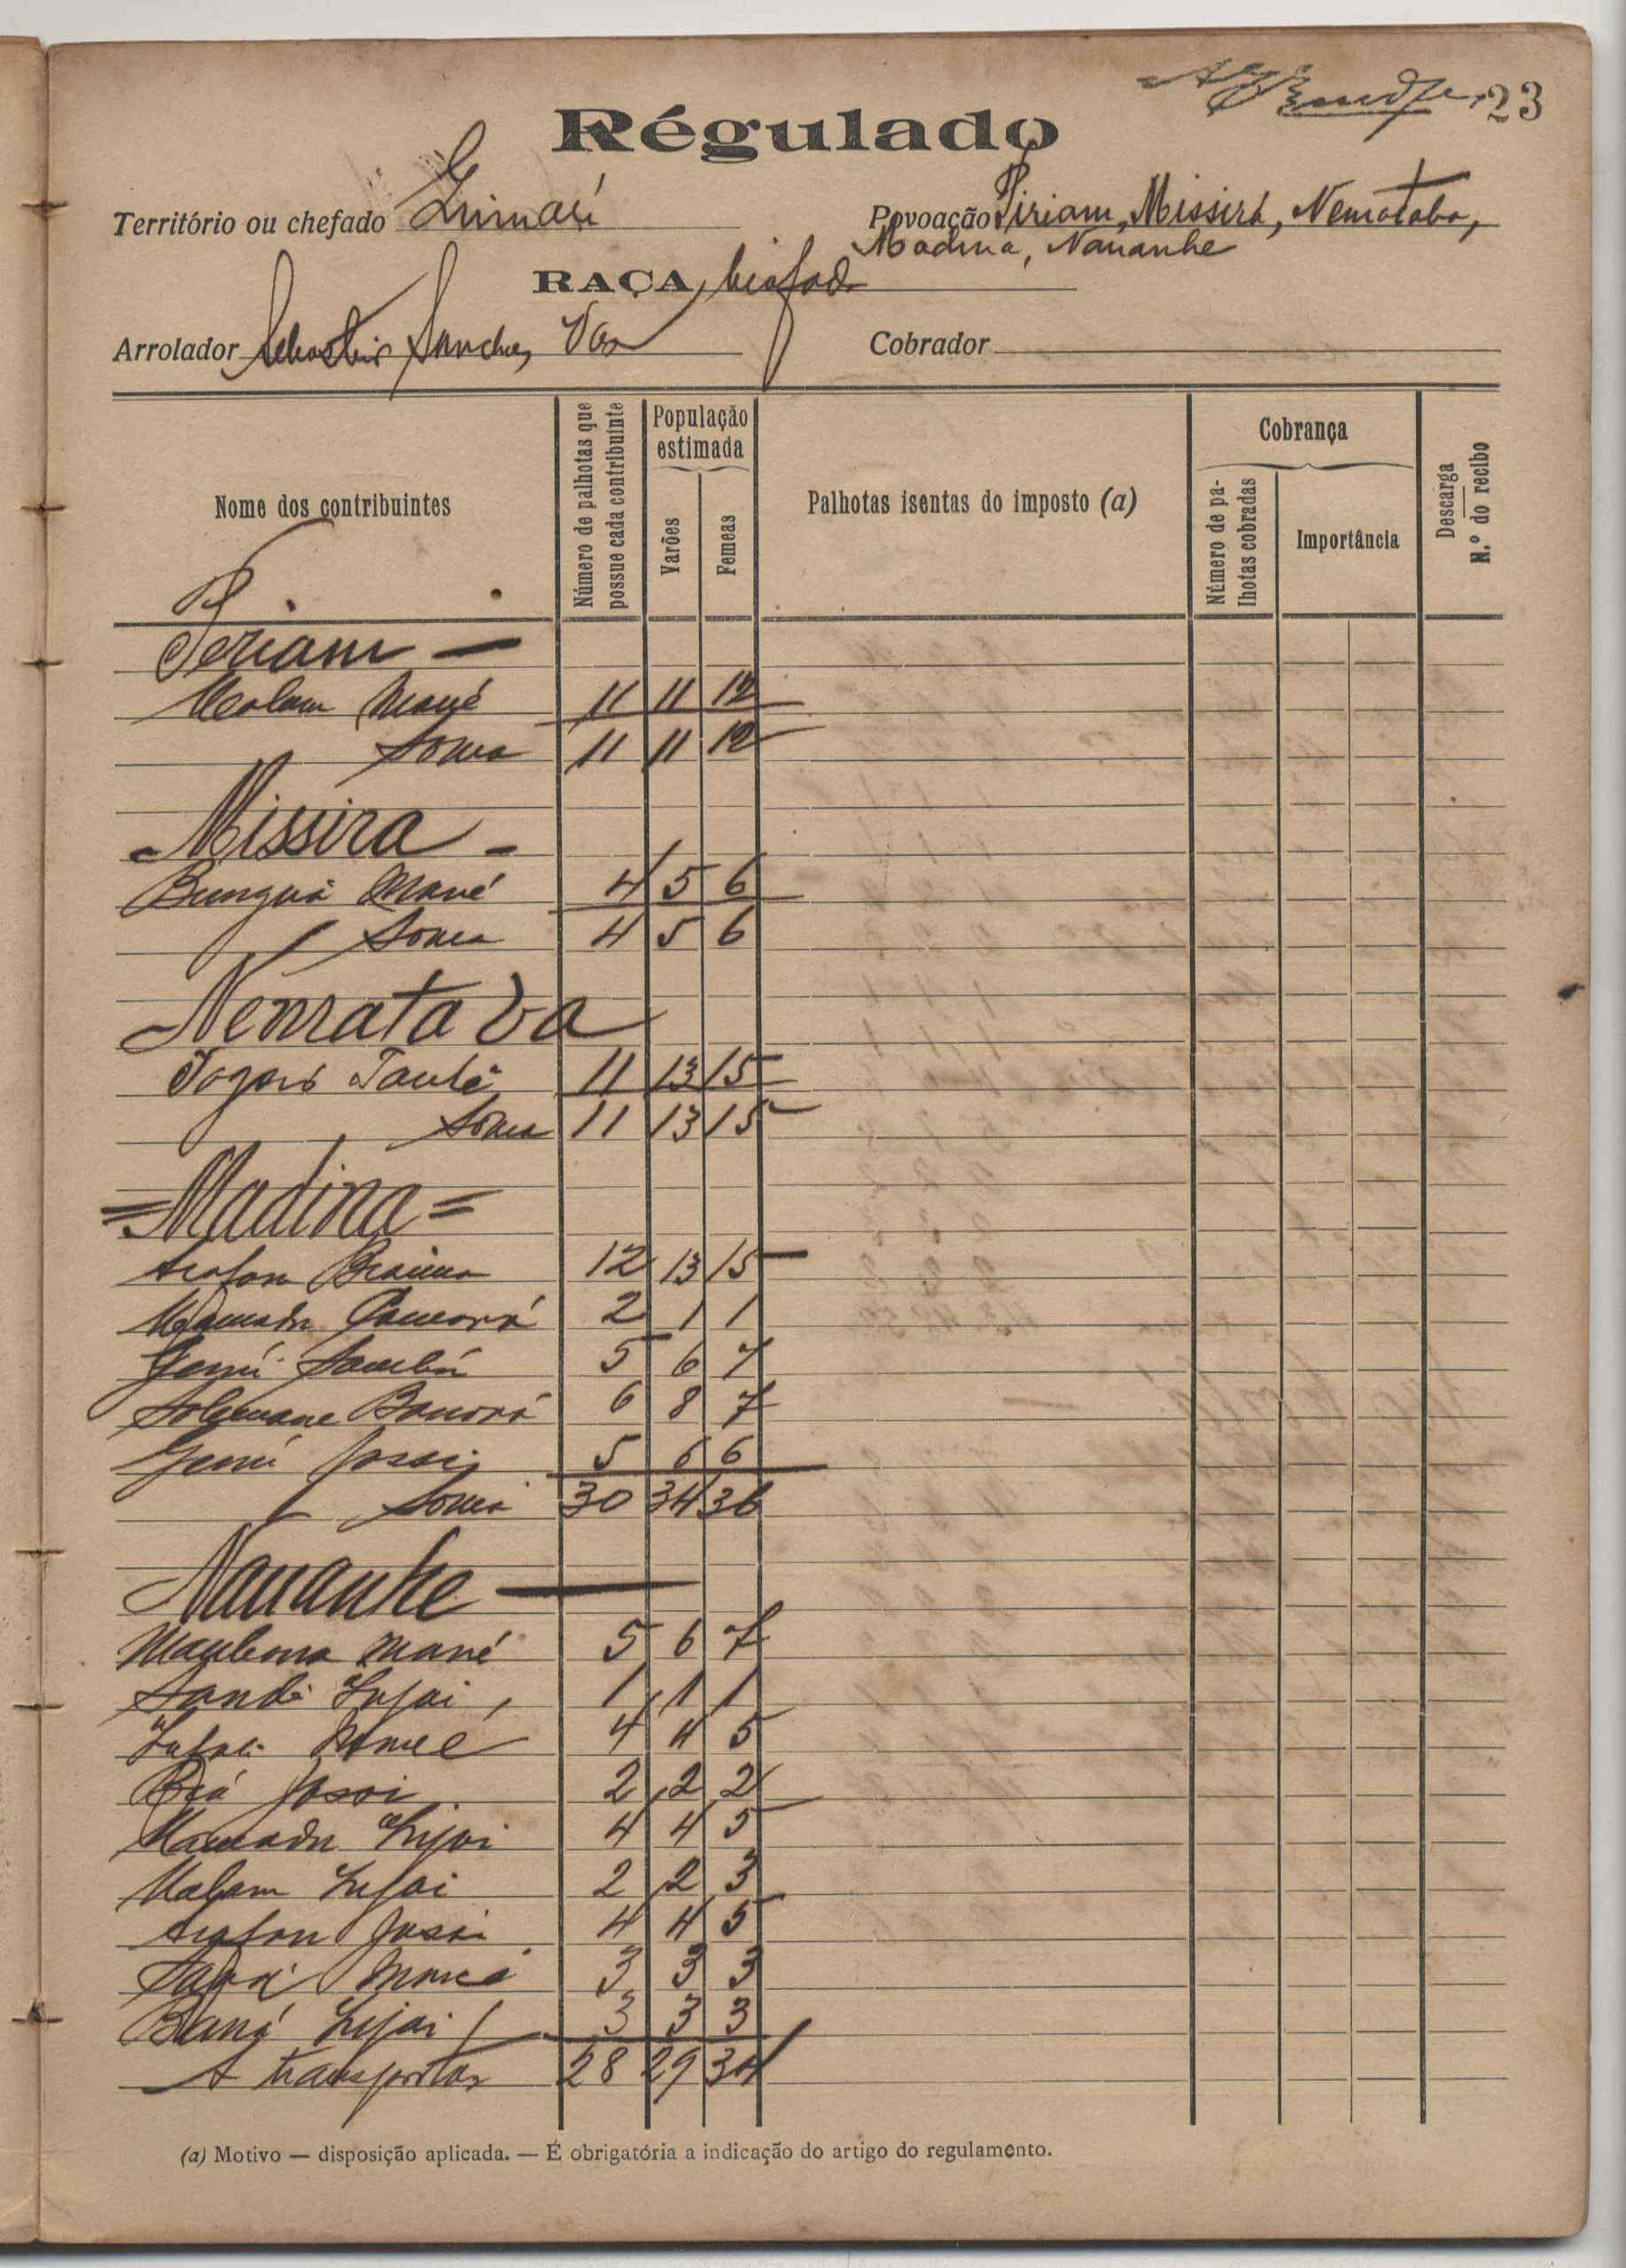 23
Régulado
Território ou chefado
Povoação Piriam, Missirá, Nemataba,
Madina, Nauanhe
RAÇA biafad
Arrolador Sanches Vaz
Cobrador
Nome dos contribuintes
Número de palhotas que possue cada contribuinte
População estimada
Varões
Femeas
Palhotas isentas do imposto (a)
Cobrança
Número de palhotas cobradas
Importância
Descarga
N.º do recibo
Piriam —
Malam Mané 11 11 12
Soma 11 11 12
- Missira -
Bunguá Mané 4 5 6
Soma 4 5 6
Nemataba
11 13 15
Soma 11 13 15
= Madina =
Arafan Braima 12 13 15
Mamadu Camará 2 1 1
5 6 7
Solemane 6 8 7
5 6 6
Soma 30 34 36
Nauanhe —
Mané 5 6 7
1 1 1
4 4 5
2 2 2
Mamadu 4 4 5
Malam 2 2 3
Arafan 4 4 5
3 3 3
3 3 3
A transportar 28 29 34
(a) Motivo — disposição aplicada. — É obrigatória a indicação do artigo do regulamento.